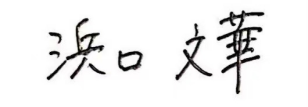 浜口 文華